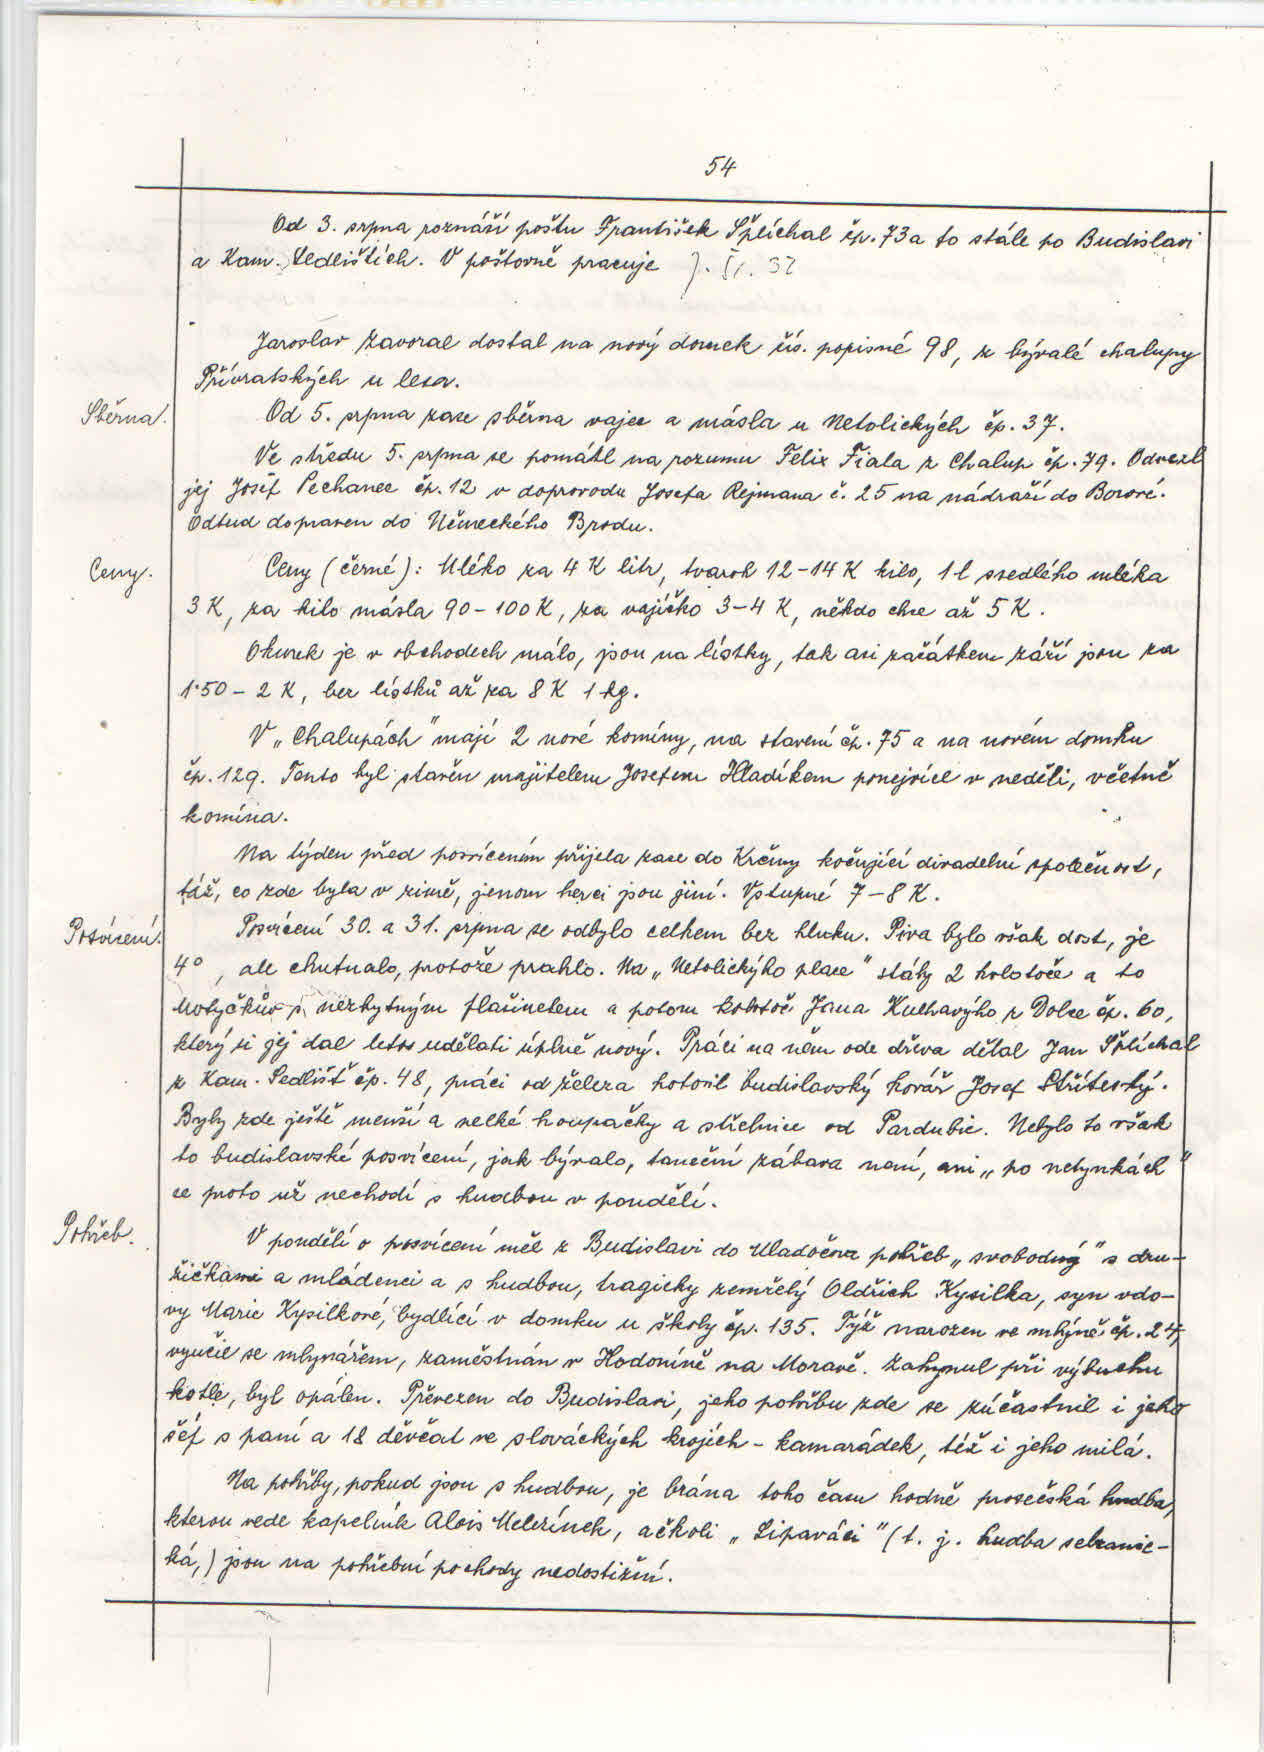 54
Od 3. srpna roznáší poštu František Šplíchal čp. 73 a to stále po Budislavi
a Kam. Sedlištích. V poštovně pracuje
Jaroslav Zavoral dostal na nový domek čís. popisné 98, z bývalé chalupy
Přívratských u lesa.
Sběrna.
Od 5. srpna zase sběrna vajec a másla u Netolických čp. 37.
Ve středu 5. srpna se pomátl na rozumu Felix Fiala z Chalup čp. 79. Odvezl
jej Josef Pechanec čp. 12 v doprovodu Josefa Rejmana č. 25 na nádraží do Borové.
Odtud dopraven do Německého Brodu.
Ceny.
Ceny (černé): Mléko za 4 K litr, tvaroh 12-14 K kilo, 1 l ssedlého mléka
3 K, za kilo másla 90-100 K, za vajíčko 3-4 K, někdo chce až 5 K.
Okurek je v obchodech málo, jsou na lístky, tak asi začátkem září jsou za
1·50 - 2 K, bez lístků až za 8 K 1 kg.
V „Chalupách" mají 2 nové komíny, na stavení čp. 75 a na novém domku
čp. 129. Tento byl stavěn majitelem Josefem Hladíkem ponejvíce v neděli, včetně
komína.
Na týden před posvícením přijela zase do Krčmy kočující divadelní společnost,
táž, co zde byla v zimě, jenom herci jsou jiní. Vstupné 7-8 K.
Posvícení.
Posvícení 30. a 31. srpna se odbylo celkem bez hluku. Piva bylo však dost, je
4°, ale chutnalo, protože prahlo. Na „Netolickýho place" stály 2 kolotoče a to
Motyčkův s nezbytným flašinetem a potom kolotoč Jana Kulhavýho z Dolce čp. 60,
který si jej dal letos udělati úplně nový. Práci na něm ode dřeva dělal Jan Šplíchal
z Kam. Sedlišť čp. 48, práci od železa hotovil budislavský kovář Josef Stříteský.
Byly zde ještě menší a velké houpačky a střelnice od Pardubic. Nebylo to však
to budislavské posvícení, jak bývalo, taneční zábava není, ani „po netynkách"
se proto už nechodí s hudbou v pondělí.
Pohřeb.
V pondělí o posvícení měl z Budislavi do Mladočova pohřeb „svobodný" s dru-
žičkami a mládenci a s hudbou, tragicky zemřelý Oldřich Kysilka, syn vdo-
vy Marie Kysilkové, bydlící v domku u školy čp. 135. Týž narozen ve mlýně čp. 24,
vyučil se mlynářem, zaměstnán v Hodoníně na Moravě. Zahynul při výbuchu
kotle, byl opálen. Převezen do Budislavi, jeho pohřbu zde se zúčastnil i jeho
šéf s paní a 18 děvčat ve slováckých krojích - kamarádek, též i jeho milá.
Na pohřby, pokud jsou s hudbou, je brána toho času hodně prosečská hudba,
kterou vede kapelník Alois Melezínek, ačkoli „Lipaváci" (t. j. hudba sebranic-
ká,) jsou na pohřební pochody nedostižní.